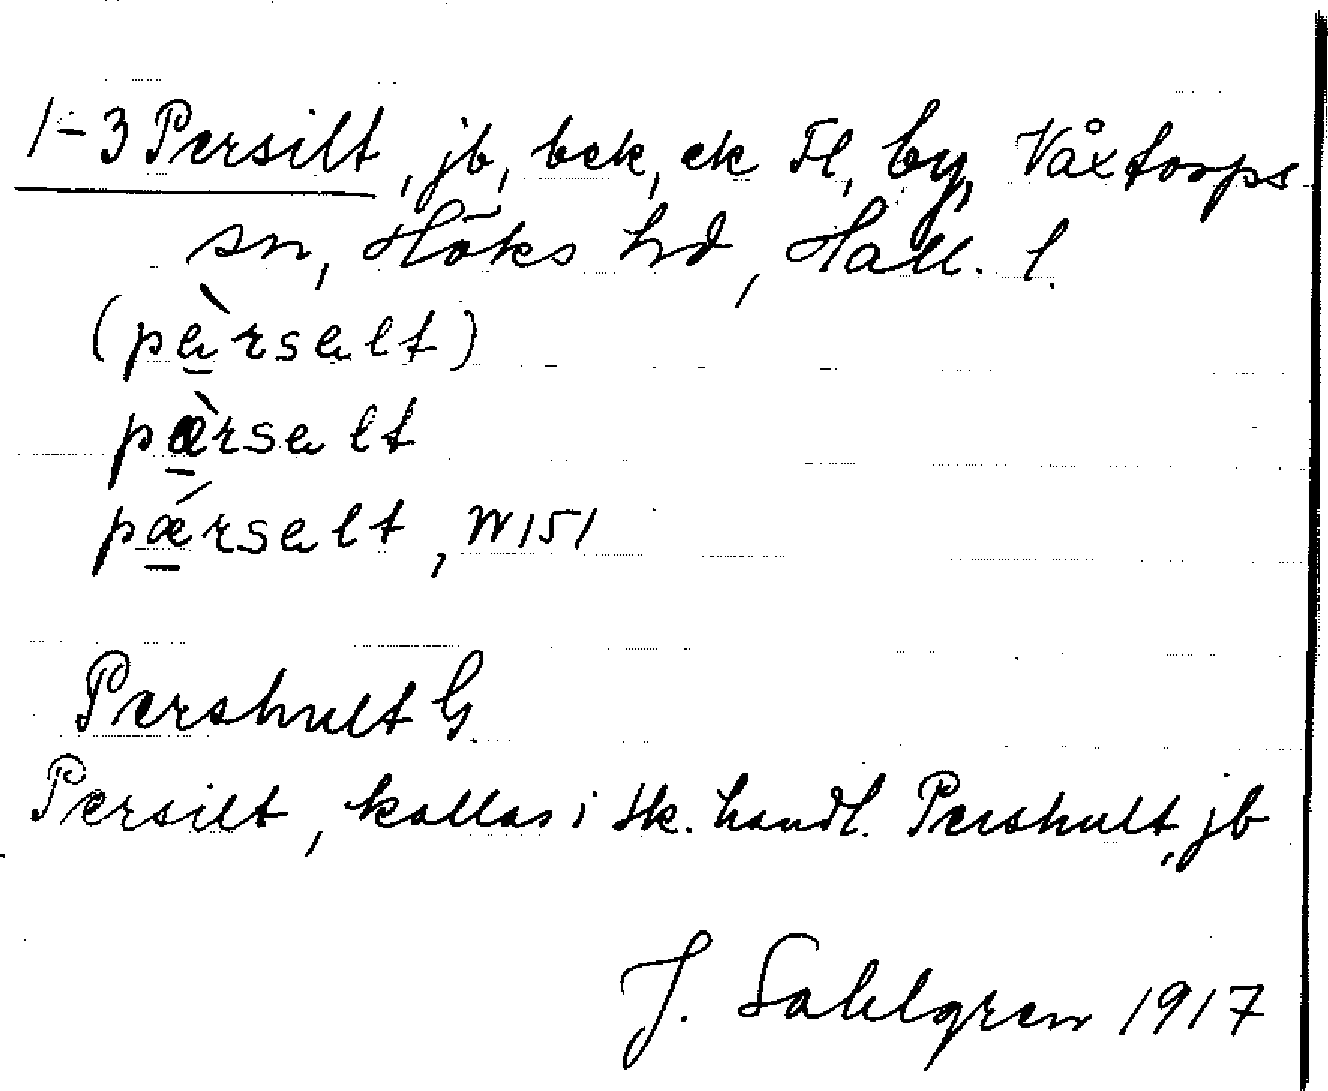 1-3 Persilt, jb, bek, ek Fl, by, Våxtorps
sn, Höks hd, Hall. l.
(pæ̀rsalt)
pæ̀rsalt
pǽrsalt, W151
Pershult G
Persilt, kallas i sk. handl. Pershult, jb
J. Sahlgren 1917